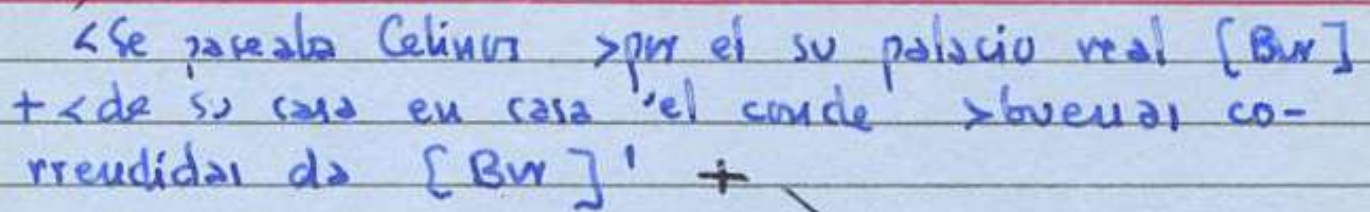 <Se paseaba Celinos >por el su palacio real [Bur]
+<de su casa en casa 'el conde >buenas co-
rrendidas da [Bur]' +